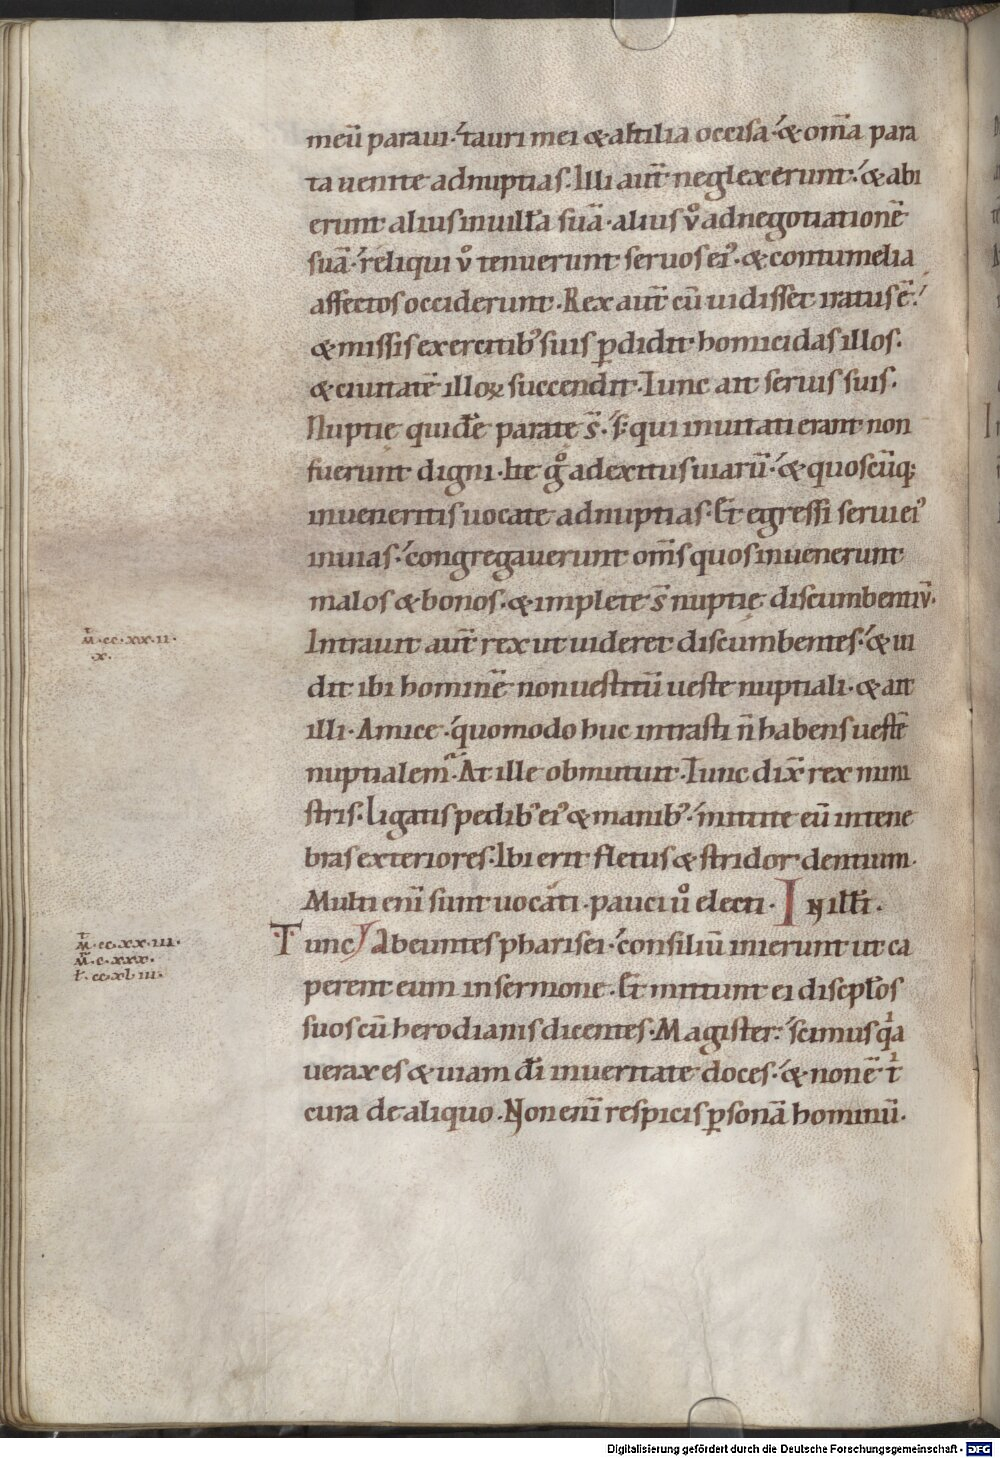 meū paraui. tauri mei & altilia occisa. & om̄a para
ta uenite ad nuptias. Illi aut̄ neglexerunt. & abi
erunt alius in uill̄a suā. alius v̊ ad negotiationē
suā. reliqui v̊ tenuerunt seruos ei᾽. & contumelia
affectos occiderunt. Rex aut̄ cū uidisset iratus ē.
& missis exercitib᾽ suis ꝑdidit homicidas illos.
& ciuitatē illoꝝ succendit. Tunc ait seruis suis.
Nuptie quid̄e parate s̄. s; qui inuitati erant non
fuerunt digni. Ite g̊ ad exitus uiarū. & quoscūq;
inueneritis uocate ad nuptias. Et egressi serui ei᾽
in uias. congregauerunt om̄s quos inuenerunt
malos & bonos. & implete s̄ nuptie discumbentiū.
ṁ. cc. xx. ii.
x.
Intrauit aut̄ rex ut uideret discumbentes. & ui
dit ibi hominē non uestitū ueste nuptiali. & ait
illi. Amice. quomodo huc intrasti n̄ habens uestē
nuptialem. At ille obmutuit. Tunc dix̄ rex mini
stris. Ligatis pedib᾽ ei᾽ & manib᾽. mittite eū in tene
bras exteriores. Ibi erit fletus & stridor dentium.
Multi eni̅ sunt uocati. pauci ů electi. In ill̄i.
ṁ. cc. xx. iii.
ṁ. c. xxx.
l. cc. xl iii.
Tunc Abeuntes pharisei. consiliū inierunt ut ca
perent eum in sermone. Et mittunt ei discipl̄os
suos cū herodianis dicentes. Magister. scimus qͥa
uerax es & uiam d̄i in ueritate doces. & non ē tͥ
cura de aliquo. Non eni̅ respicis ꝑsonā hominū.
Digitalisierung gefördert durch die Deutsche Forschungsgemeinschaft - DFG